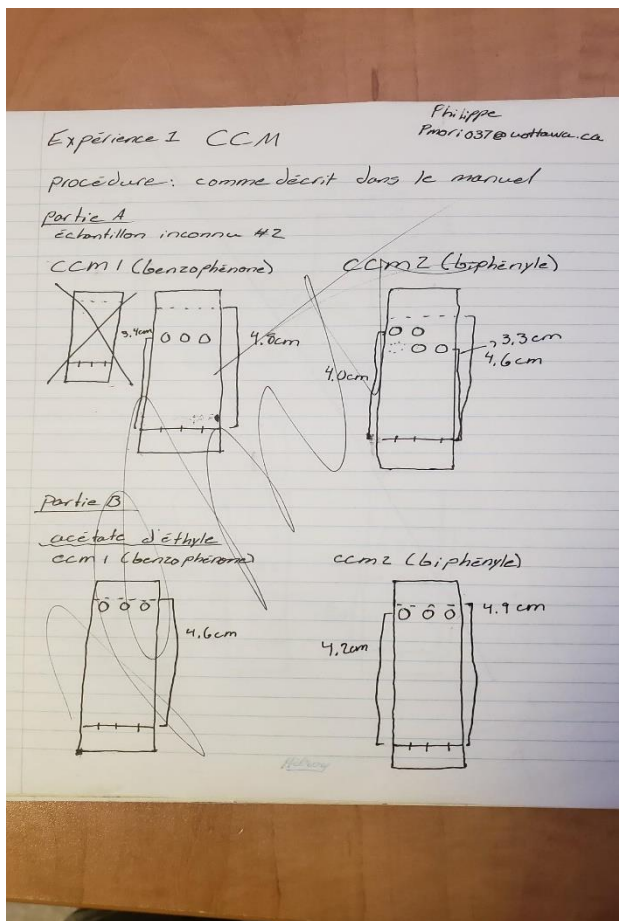 Philippe
Pmori037@uottawa.ca
Expérience 1 CCM
procédure: comme décrit dans le manuel
Partie A
échantillon inconnu #2
CCM1 (benzophénone)
CCM2 (biphényle)
3.4cm
4.8cm
3.3cm
4.6cm
4.0cm
Partie B
acétate d'éthyle
CCM1 (benzophénone)
CCM2 (biphényle)
4.6cm
4.2cm
4.9cm